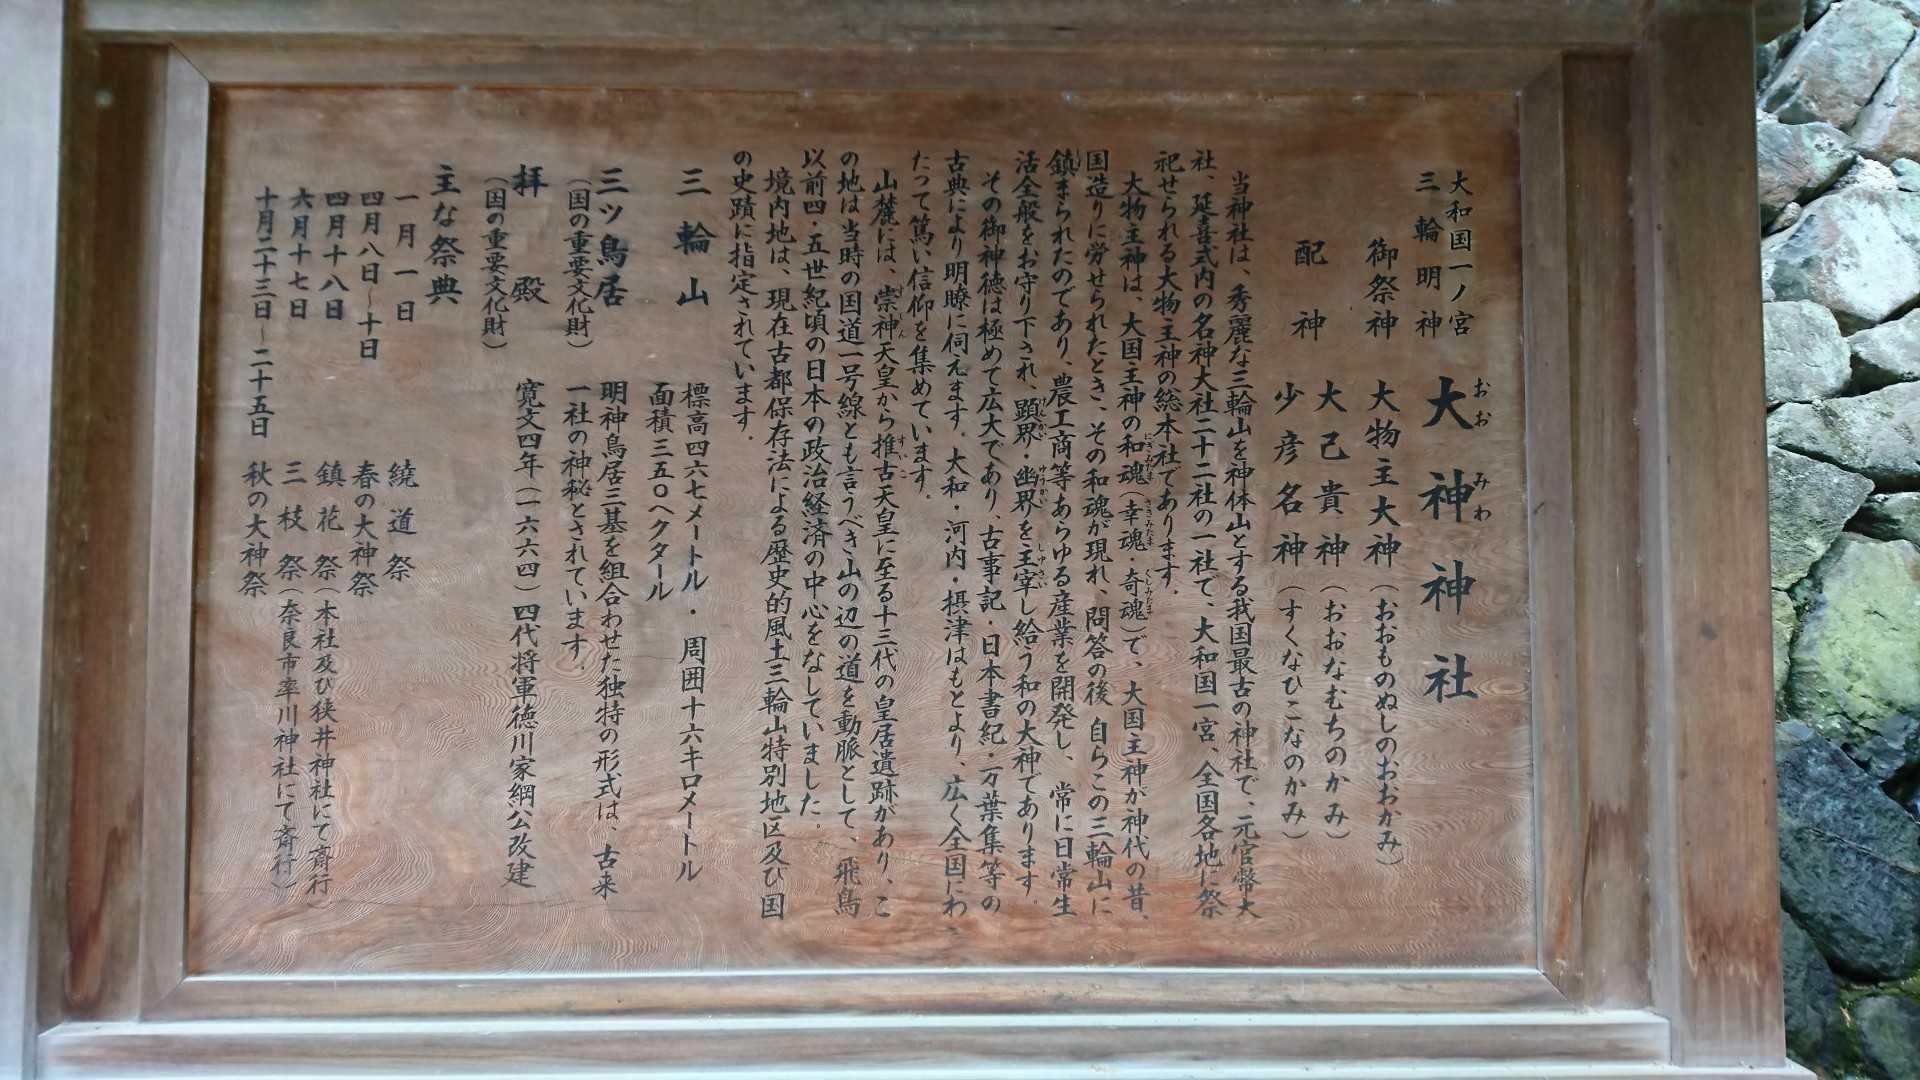 大和国一ノ宮
三輪明神
大神神社
おお みわ
御祭神 大物主大神(おおものぬしのおおかみ)
配神 大己貴神(おおなむちのかみ)
少彦名神(すくなひこなのかみ)
当神社は、秀麗な三輪山を神体山とする我国最古の神社で、元官幣大
社、延喜式内の名神大社二十二社の一社で、大和国一宮、全国各地に祭
祀せられる大物主神の総本社であります．
大物主神は、大国主神の和魂(幸魂・奇魂)で、大国主神が神代の昔、
にぎみたま さきみたま くしみたま
国造りに労せられたとき、その和魂が現れ、問答の後 自らこの三輪山に
鎮まられたのであり、農工商等あらゆる産業を開発し、常に日常生
活全般をお守り下され、顕界・幽界を主宰し給う和の大神であります．
けんかい ゆうかい しゅさい
その御神徳は極めて広大であり、古事記・日本書紀・万葉集等の
古典により明瞭に伺えます．大和・河内・摂津はもとより、広く全国にわ
たって篤い信仰を集めています．
山麓には、崇神天皇から推古天皇に至る十三代の皇居遺跡があり、こ
すじん すいこ
の地は当時の国道一号線とも言うべき山の辺の道を動脈として、飛鳥
以前四・五世紀頃の日本の政治経済の中心をなしていました．
境内地は、現在古都保存法による歴史的風土三輪山特別地区及び国
の史蹟に指定されています．
三輪山 標高四六七メートル・周囲十六キロメートル
面積三五〇ヘクタール
三ツ鳥居 明神鳥居三基を組合わせた独特の形式は、古来
(国の重要文化財) 一社の神秘とされています．
拝殿 寛文四年(一六六四)四代将軍徳川家綱公改建
(国の重要文化財)
主な祭典
一月一日 繞道祭
四月八日〜十日 春の大神祭
四月十八日 鎮花祭(本社及び狭井神社にて斎行)
六月十七日 三枝祭(奈良市率川神社にて斎行)
十月二十三日〜二十五日 秋の大神祭